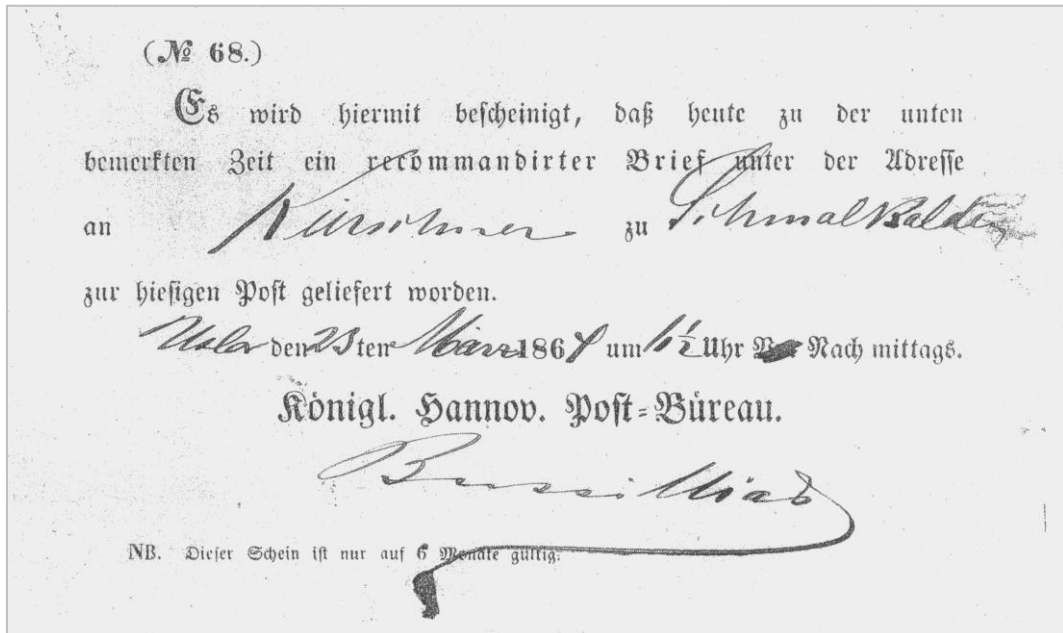 (№ 68.)
Es wird hiermit bescheinigt, daß heute zu der unten
bemerkten Zeit ein recommandirter Brief unter der Adresse
an Kürschner zu Schmalkalden
zur hiesigen Post geliefert worden.
Uslar den 23ten März 1864 um ½ Uhr Nach mittags.
Königl. Hannov. Post-Büreau.
NB. Dieser Schein ist nur auf 6 Monate gültig.